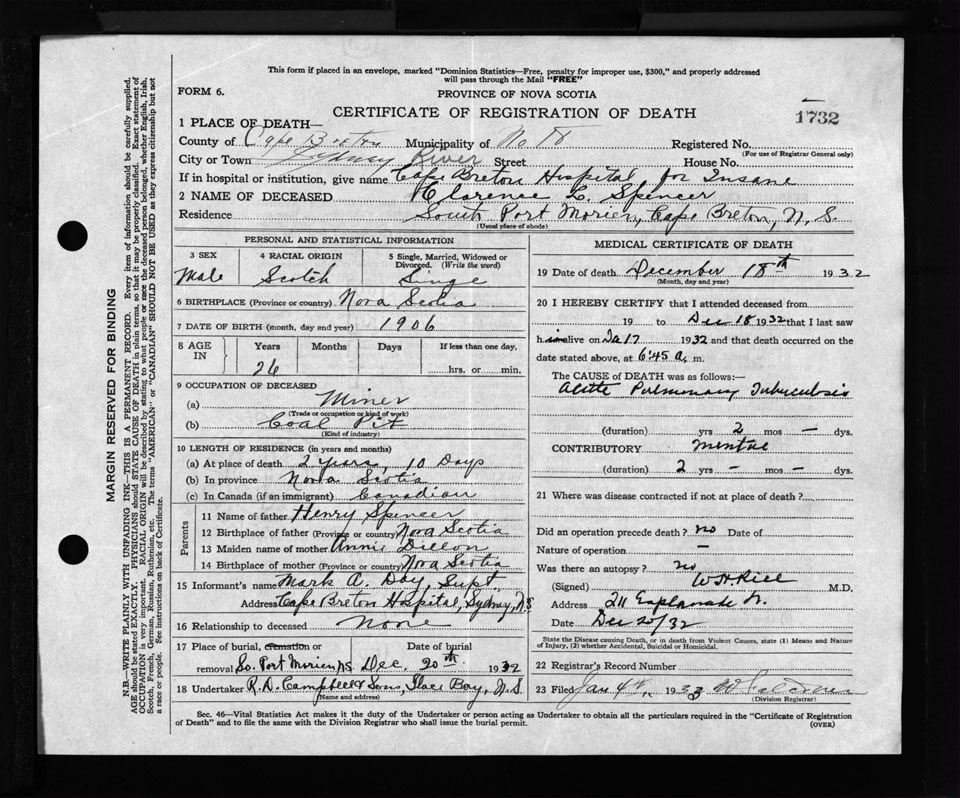 This form if placed in an envelope, marked "Dominion Statistics—Free, penalty for improper use, $300," and properly addressed
will pass through the Mail "FREE"
FORM 6.
PROVINCE OF NOVA SCOTIA
CERTIFICATE OF REGISTRATION OF DEATH
1732
1 PLACE OF DEATH—
County of Cape Breton Municipality of Registered No.
(For use of Registrar General only)
City or Town Sydney River Street House No.
If in hospital or institution, give name Cape Breton Hospital, for Insane
2 NAME OF DECEASED Clarence C. Spencer
Residence South Port Morien, Cape Breton, N. S.
(Usual place of abode)
PERSONAL AND STATISTICAL INFORMATION
3 SEX
Male
4 RACIAL ORIGIN
Scotch
5 Single, Married, Widowed or
Divorced. (Write the word)
Singe
6 BIRTHPLACE (Province or country) Nova Scotia
7 DATE OF BIRTH (month, day and year) 1906
8 AGE IN
Years Months Days If less than one day,
26
hrs. or min.
9 OCCUPATION OF DECEASED
(a) Miner
(Trade or occupation or kind of work)
(b) Coal Pit
(Kind of industry)
10 LENGTH OF RESIDENCE (in years and months)
(a) At place of death 2 Years, 10 Days
(b) In province Nova Scotia
(c) In Canada (if an immigrant) Canadian
Parents
11 Name of father Henry Spencer
12 Birthplace of father (Province or country) Nova Scotia
13 Maiden name of mother Annie Dillon
14 Birthplace of mother (Province or country) Nova Scotia
15 Informant's name Mark A. Day, Supt.
Address Cape Breton Hospital, Sydney, N.S
16 Relationship to deceased None
17 Place of burial, cremation or Date of burial
removal So. Port Morien N.S. Dec. 20th 1932
18 Undertaker R. D. Campbell & Sons, Glace Bay, N. S.
(Name and address)
MEDICAL CERTIFICATE OF DEATH
19 Date of death December 18th 1932
(Month, day and year)
20 I HEREBY CERTIFY that I attended deceased from
19 to Dec 18 1932 that I last saw
him alive on 17 1932 and that death occurred on the
date stated above, at 6:45 a. m.
The CAUSE OF DEATH was as follows:—
Acute Pulmonary Tuberculosis
(duration) yrs 2 mos — dys.
CONTRIBUTORY Mental
(duration) 2 yrs — mos — dys.
21 Where was disease contracted if not at place of death?
Did an operation precede death? no Date of
Nature of operation —
Was there an autopsy? no
(Signed) M.D.
Address 211 Esplanade
Date Dec 20/32
State the Disease causing Death, or in death from Violent Causes, state (1) Means and Nature
of Injury, (2) whether Accidental, Suicidal or Homicidal.
22 Registrar's Record Number
23 Filed Jan 4th, 1933
(Division Registrar)
Sec. 46—Vital Statistics Act makes it the duty of the Undertaker or person acting as Undertaker to obtain all the particulars required in the "Certificate of Registration
of Death" and to file the same with the Division Registrar who shall issue the burial permit.
(OVER)
MARGIN RESERVED FOR BINDING
N.B.—WRITE PLAINLY WITH UNFADING INK—THIS IS A PERMANENT RECORD. Every item of information should be carefully supplied.
AGE should be stated EXACTLY. PHYSICIANS should STATE CAUSE OF DEATH in plain terms, so that it may be properly classified. Exact statement of
OCCUPATION is very important. RACIAL ORIGIN will be described by stating to what people or race the deceased person belonged, whether English, Irish,
Scotch, French, German, Russian, Ruthenian, etc. The terms "AMERICAN" or "CANADIAN" SHOULD NOT BE USED as they express citizenship but not
a race or people. See instructions on back of Certificate.